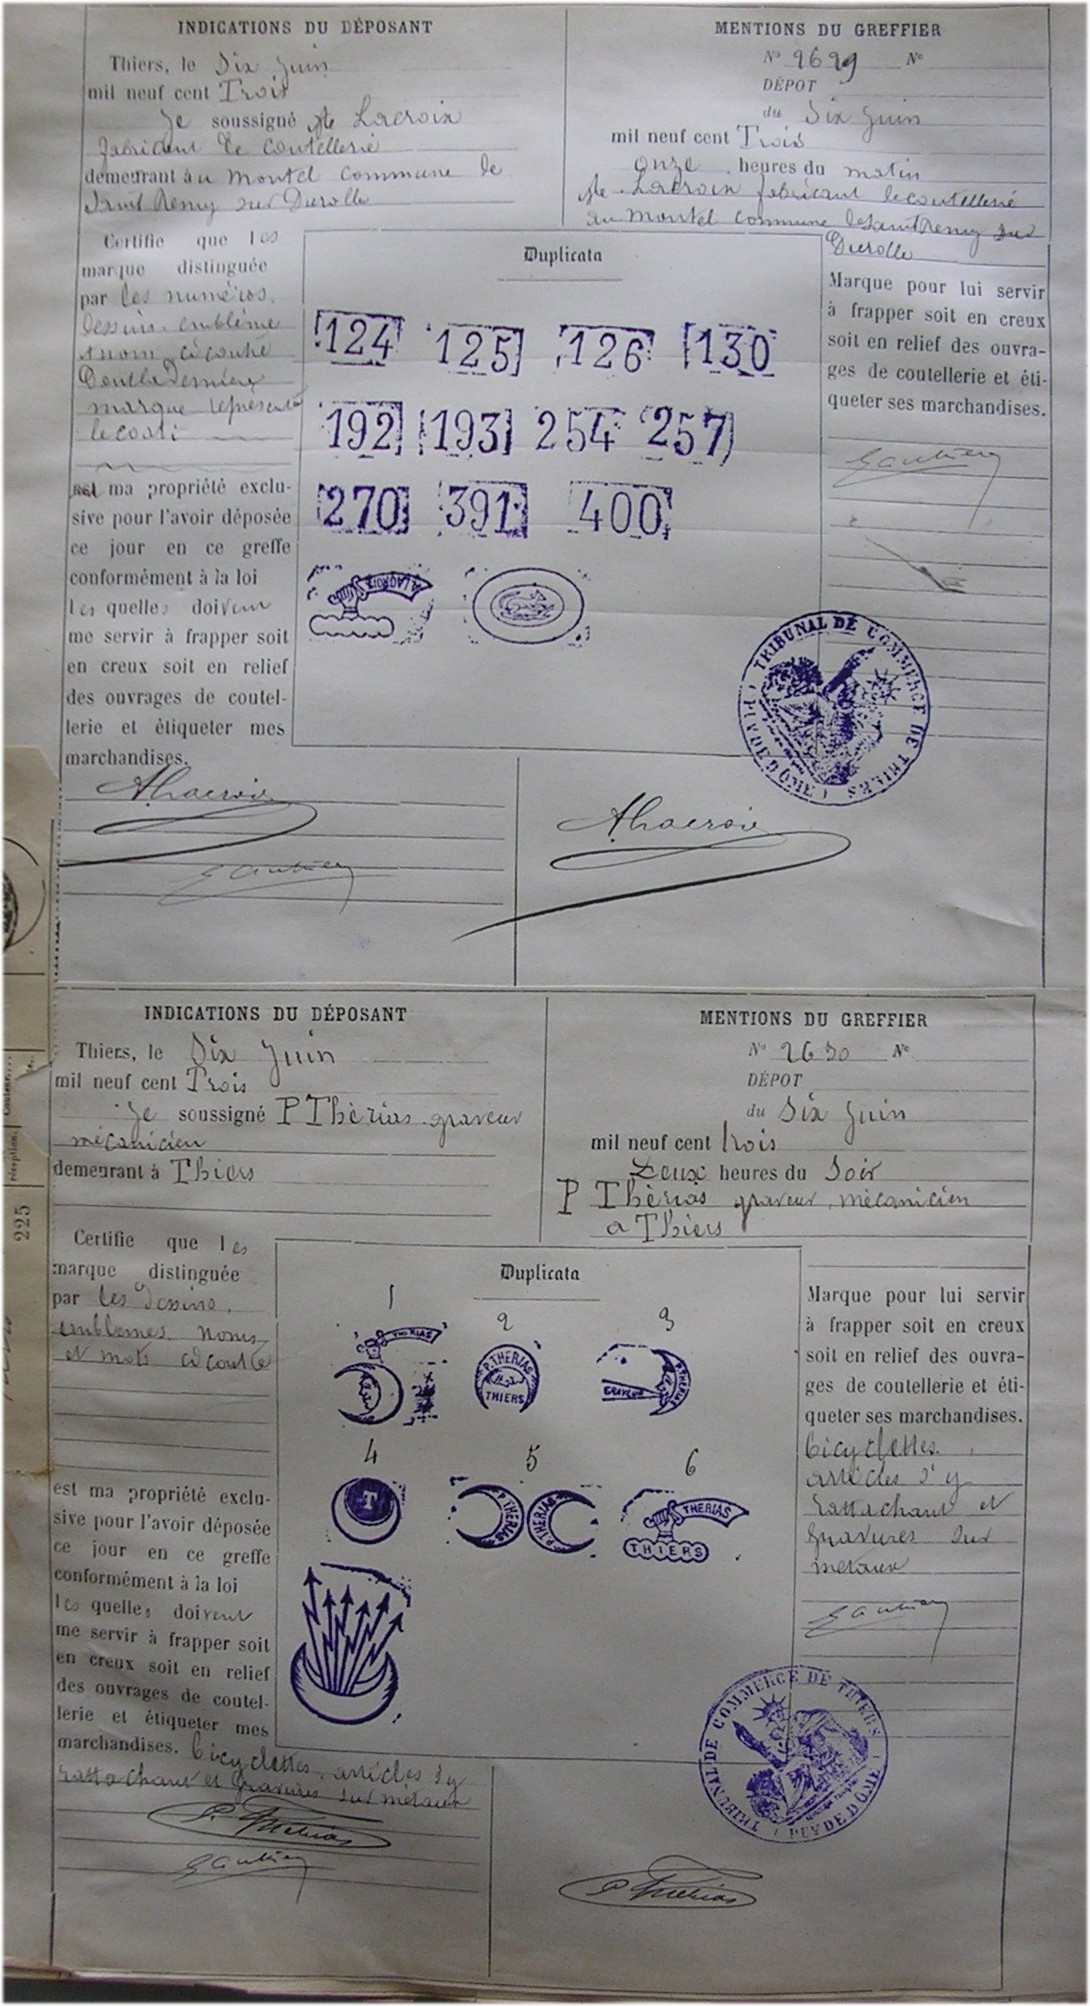 INDICATIONS DU DÉPOSANT
Thiers, le Six Juin
mil neuf cent Trois
Je soussigné Lacroix
fabricant de coutellerie
demeurant à au Montel Commune de
Saint Remy sur Durolle
MENTIONS DU GREFFIER
N° 2629 N°
DÉPOT
du Six Juin
mil neuf cent Trois
onze heures du matin
Lacroix fabricant de coutellerie
au montel commune de Saint Remy sur
Durolle
Certifie que les
marque distinguée
par les numéros,
dessin emblême
nom ci contre
Dont la Dernière
marque représente
est ma propriété exclu-
sive pour l'avoir déposée
ce jour en ce greffe
conformément à la loi
les quelles doivent
me servir à frapper soit
en creux soit en relief
des ouvrages de coutel-
lerie et étiqueter mes
marchandises.
Duplicata
124 125 126 130
192 193 254 257
270 391 400
A. LACROIX
Marque pour lui servir
à frapper soit en creux
soit en relief des ouvra-
ges de coutellerie et éti-
queter ses marchandises.
Gauthier
TRIBUNAL DE COMMERCE DE THIERS (PUY DE DÔME)
A Lacroix
Gauthier
A Lacroix
INDICATIONS DU DÉPOSANT
Thiers, le Six Juin
mil neuf cent Trois
Je soussigné P Thérias graveur
mécanicien
demeurant à Thiers
MENTIONS DU GREFFIER
N° 2630 N°
DÉPOT
du Six Juin
mil neuf cent trois
Deux heures du Soir
P Thérias graveur mécanicien
a Thiers
Certifie que les
marque distinguée
par les Dessins,
emblemes noms
et mots ci contre
est ma propriété exclu-
sive pour l'avoir déposée
ce jour en ce greffe
conformément à la loi
les quelles doivent
me servir à frapper soit
en creux soit en relief
des ouvrages de coutel-
lerie et étiqueter mes
marchandises. bicyclettes, articles s'y
rattachant et gravures sur métaux
Duplicata
1 2 3
THERIAS
P. THERIAS
THIERS
GRAVEUR
P. THERIAS
4 5 6
T
P. THERIAS
P. THERIAS
THERIAS
THIERS
Marque pour lui servir
à frapper soit en creux
soit en relief des ouvra-
ges de coutellerie et éti-
queter ses marchandises.
bicyclettes.
articles s'y
rattachant et
gravures sur
métaux
Gauthier
TRIBUNAL DE COMMERCE DE THIERS (PUY DE DÔME)
P. Thérias
Gauthier
P. Thérias
225